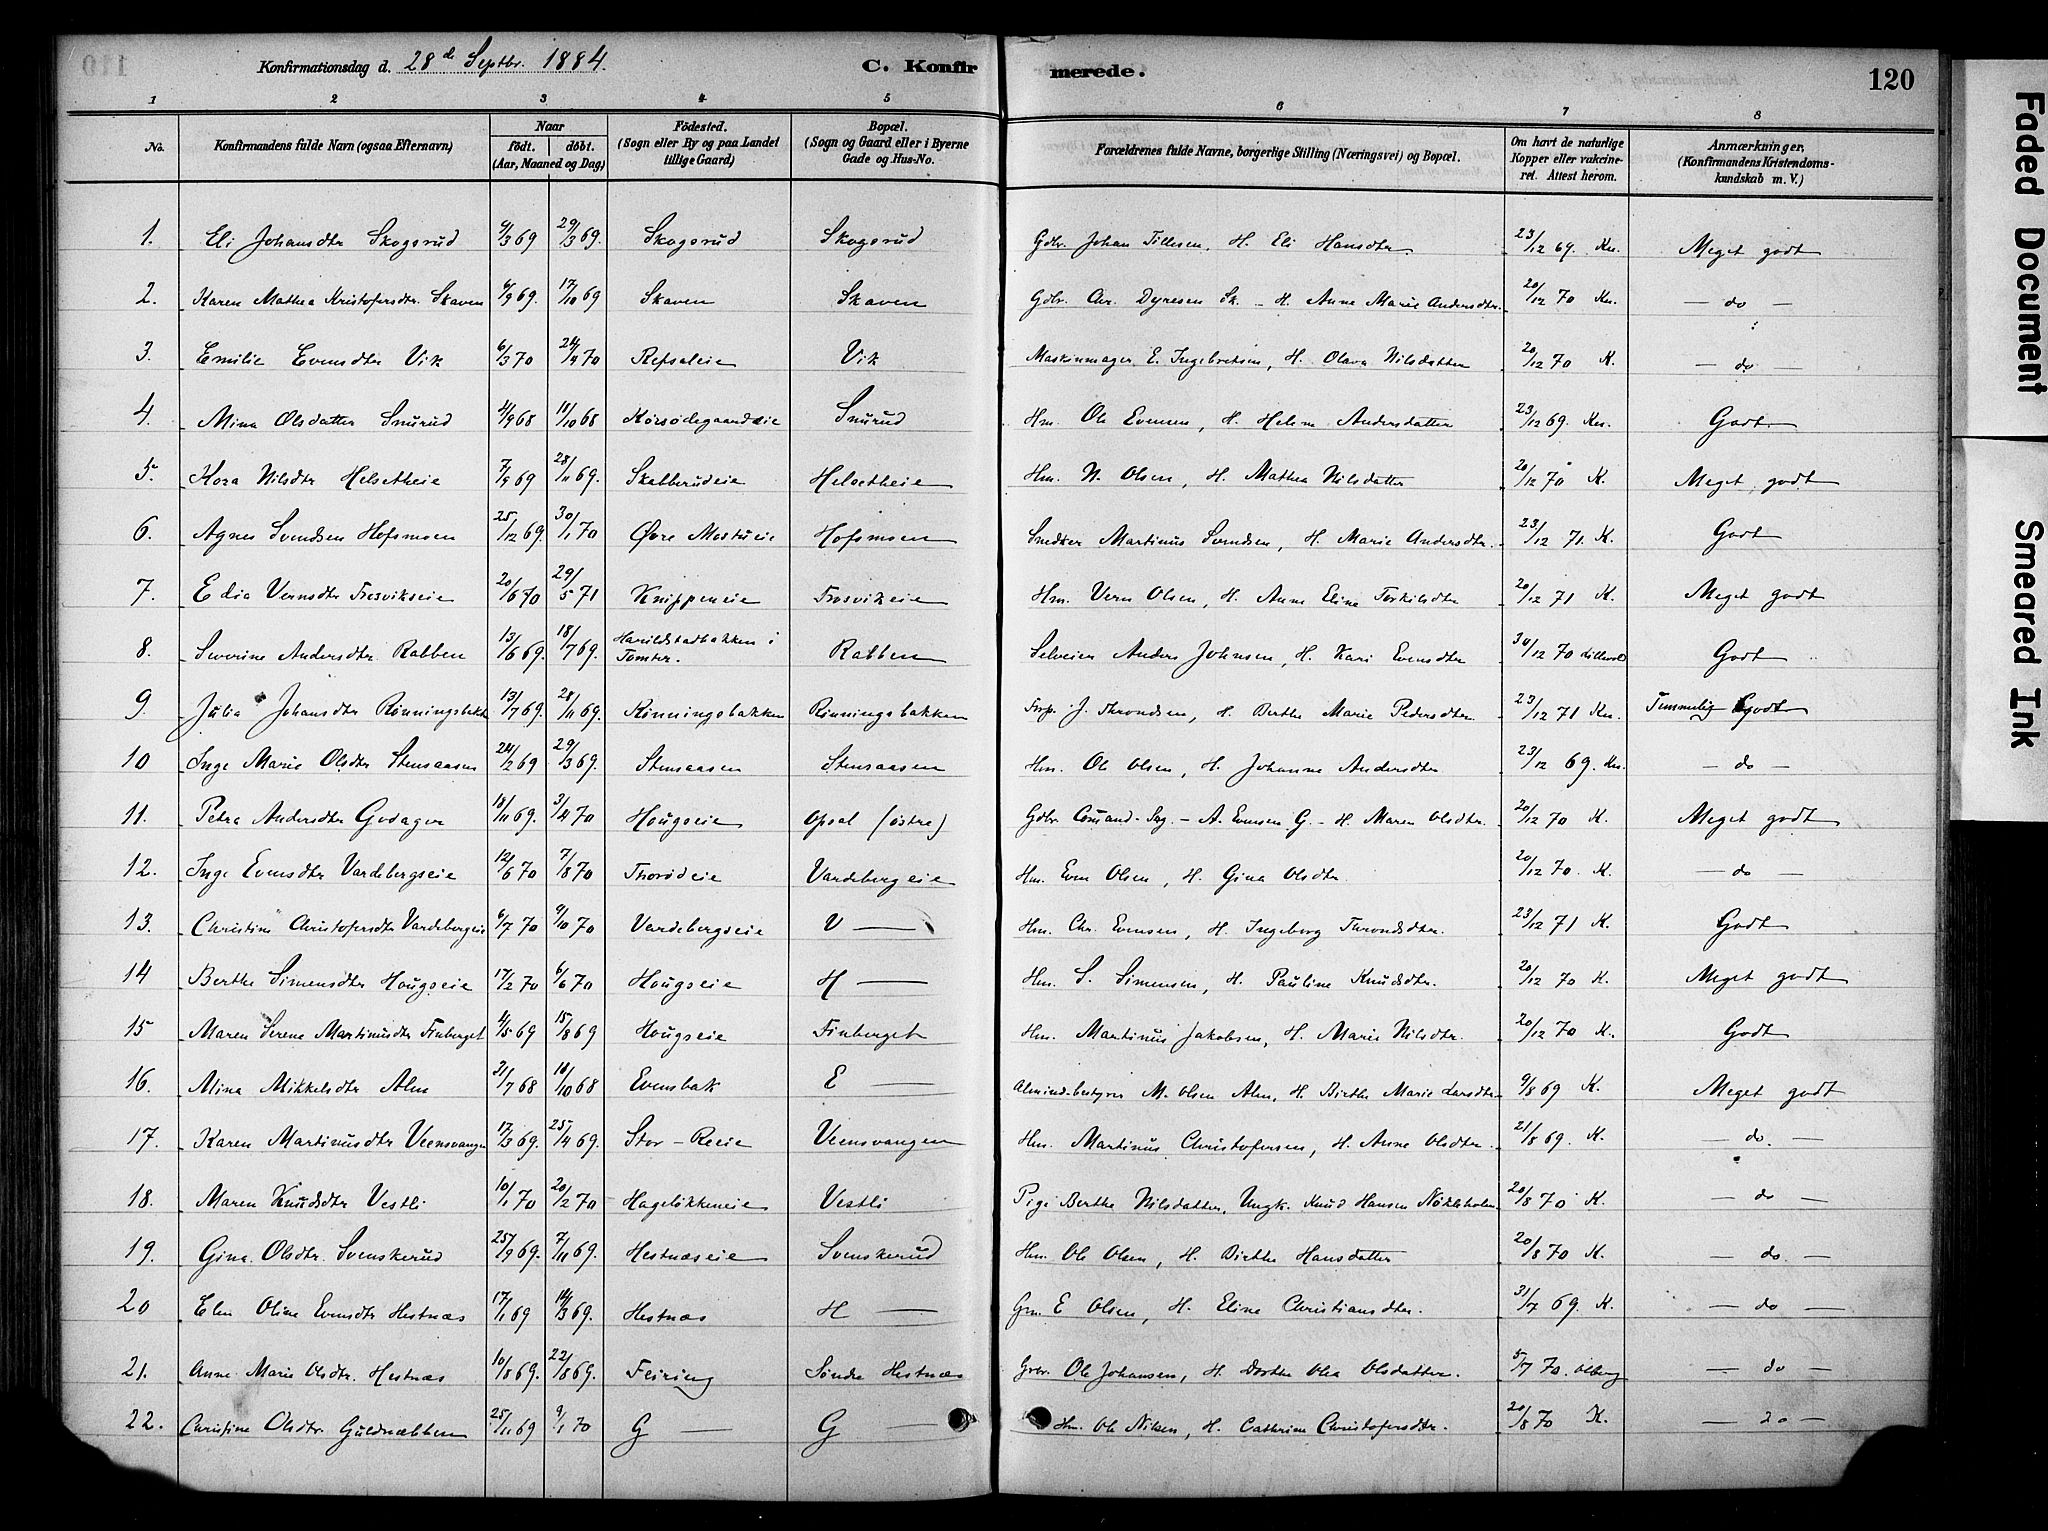 Konfirmationsdag d. 28de Septbr. 1884.
C. Konfirmerede.
120
1 2 3 4 5 6 7 8
No.
Konfirmandens fulde Navn (ogsaa Efternavn)
Naar
født. døbt.
(Aar, Maaned og Dag)
Fødested.
(Sogn eller By og paa Landet tillige Gaard)
Bopæl.
(Sogn og Gaard eller i Byerne Gade og Hus-No.
Forældrenes fulde Navne, borgerlige Stilling (Næringsvei) og Bopæl.
Om havt de naturlige Kopper eller vakcineret. Attest herom.
Anmærkninger,
(Konfirmandens Kristendomskundskab m. V.)
1. Eli Johansdtr Skogsrud 9/3 69 29/3 69. Skogsrud Skogsrud Gdbr. Johan Tillesen, H. Eli Hansdtr. 23/12 69. Kn. Meget godt
2. Karen Mathea Kristofersdtr. Skaven 6/9 69. 17/10 69 Skaven Skaven Gdbr. Chr. Dyresen Sk. - H. Anne Marie Andersdtr. 20/12 70 Kn. — do —
3. Emilie Evensdtr Vik 6/3 70 24/4 70 Refsaleie Vik Maskinmager E. Ingebretsen, H. Olava Nilsdatter 20/12 70 K. — do —
4. Mina Olsdatter Snurud 4/9 68 11/10 68 Korsødegaardseie Snurud Hm. Ole Evensen, H. Helene Andersdatter 23/12 69. Kn. Godt.
5. Kora Nilsdtr Helsetheie 7/9 69 28/11 69. Skabberudeie Helsetheie Hm. N. Olsen, H. Mathea Nilsdatter 20/12 70 K. Meget godt
6. Agnes Svendsen Hofsmoen 25/12 69. 30/1 70 Øvre Mostueie Hofsmoen Snedker Martinus Svendsen, H. Marie Andersdtr. 23/12 71. K. Godt
7. Edia Vernsdtr Frosvikseie 20/6 70 29/5 71 Knippeneie Frosvikeie Hm. Vern Olsen, H. Anne Eline Torkilsdtr 20/12 71 K. Meget godt
8. Severine Andersdtr. Rabben 13/6 69. 18/7 69. Haraldstadbakken i Tomter. Rabben Selveier Anders Johnsen, H. Kari Evensdtr 30/12 70 Godt
9. Julia Johansdtr Rønningsbakk 13/7 69. 28/11 69. Rønningsbakken Rønningsbakken J. Throndsen, H. Berthe Marie Pedersdtr. 23/12 71 Kn. Temmelig godt
10 Inge Marie Olsdtr Stensaasen 24/2 69 29/3 69. Stensaasen Stensaasen Hm. Ole Olsen, H. Johanne Andersdtr 23/12 69. Kn. — do —
11. Petra Andersdtr Godager 18/11 69. 3/4 70 Hougseie Opsal (østre) Gdbr. A. Evensen G. - H. Maren Olsdtr. 20/12 70 K. Meget godt
12. Inge Evensdtr Vardebergseie 12/6 70 7/8 70 Thorødeie Vardebergeie Hm. Even Olsen, H. Gina Olsdtr. 20/12 70. K. — do —
13. Christine Christofersdtr Vardebergeie 6/7 70 9/10 70 Vardebergseie V — Hm. Chr. Evensen, H. Ingeborg Throndsdtr. 23/12 71 K. Godt
14 Berthe Simensdtr Hougseie 17/2 70 6/6 70 Hougseie H — Hm. S. Simensen, H. Pauline Knudsdtr. 20/12 70 K. Meget godt
15 Maren Serene Martinusdtr Finberget 4/5 69 15/8 69 Hougseie Finberget Hm. Martinus Jakobsen, H. Marie Nilsdtr. 20/12 70 K. Godt
16. Mina Mikkelsdtr Alm 21/7 68 18/10 68 Evensbak E — Almindbestyrer M. Olsen Alm, H. Birthe Marie Larsdtr. 9/8 69 K. Meget godt
17. Karen Martinusdtr Veensvangen 17/3 69. 25/4 69. Stor-Reeie Veensvangen Hm. Martinus Christofersen, H. Anne Olsdtr. 21/8 69. K. — do. —
18. Maren Knudsdtr Vestli 10/1 70 20/2 70 Hageløkkeneie Vestli Pige Berthe Nilsdatter, Ungk. Knud Hansen Nøkleholm 20/8 70 K. — do —
19. Gina Olsdtr. Svenskerud 25/9 69. 7/11 69. Hestnæseie Svenskerud Hm. Ole Olsen, H. Birthe Hansdatter 20/8 70 K. — do. —
20 Elen Oline Evensdtr Hestnæs 17/1 69 14/3 69. Hestnæs H — Gm. E Olsen, H. Eline Christiansdtr. 31/7 69. K. — do —
21. Anne Marie Olsdtr. Hestnæs 10/8 69. 22/8 69. Feiring Søndre Hestnæs Gbr. Ole Johansen, H. Dorthe Olea Olsdatter. 5/7 70. Olberg — do —
22. Christine Olsdtr. Guldnæbben 25/11 69 9/1 70 G — G — Hm. Ole Nilsen, H. Cathrine Christofersdtr. 20/8 70 K. — do —
Faded Document
Smeared Ink